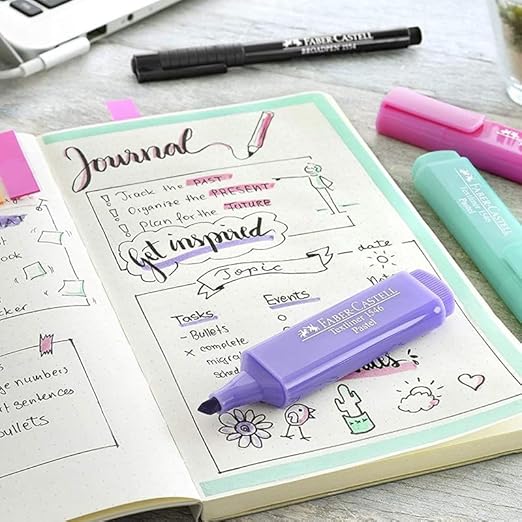 FABER-CASTELL
BROADPEN 1554
Journal
! Track the PAST
! Organize the PRESENT
! Plan for the FUTURE
Get inspired
Topic
date
Tasks
Events
Bullets
x complete
FABER-CASTELL
Textliner 1546
Pastel
FABER-CASTELL
Textliner 1546
Pastel
numbers
sentences
bullets